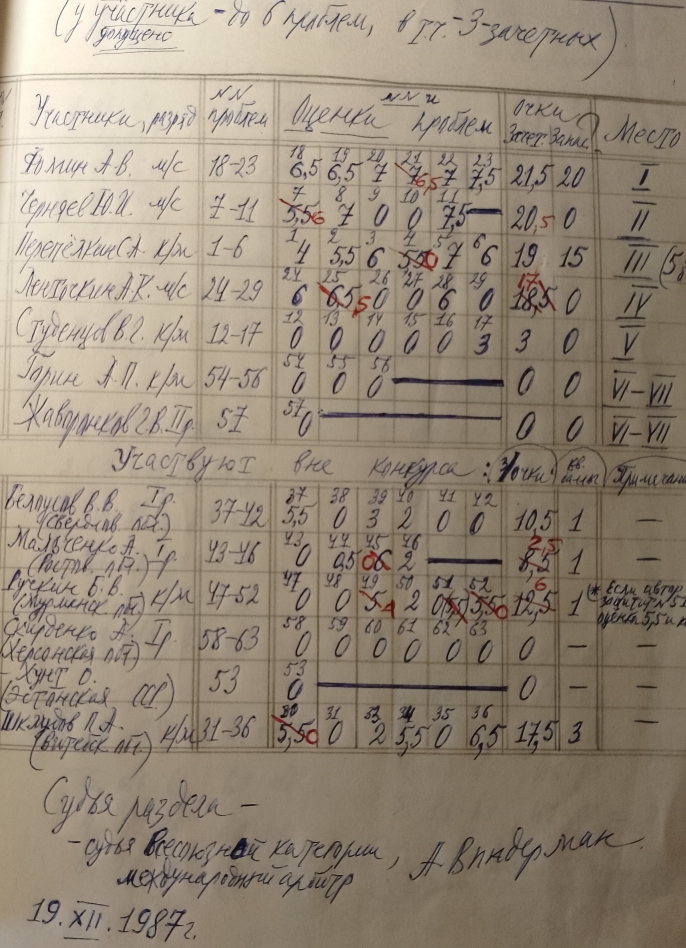 (у участника - до 6 проблем, в т.ч. - 3-зачетных)
допущено
Участники, разряд NN проблем Оценки NN и проблем Очки Зачет. Запас. Место
18 19 20 21 22 23
Фомин А.В. м/с 18-23 6,5 6,5 7 7 6,5 7 7,5 21,5 20 I
7 8 9 10 11
Ю.И. м/с 7-11 5,5 6 7 0 0 7,5 — 20,5 0 II
1 2 3 4 5 6
Перепёлкин С.А. к/м 1-6 4 5,5 6 5,5 0 7 6 19 15 III
24 25 26 27 28 29
Ленточкин А.К. м/с 24-29 6 6,5 5 0 0 6 0 18,5 17 0 IV
12 13 14 15 16 17
Студенцов В.Г. к/м 12-17 0 0 0 0 0 3 3 0 V
54 55 56
Гарин А.П. к/м 54-56 0 0 0 — 0 0 VI-VII
57
Жаворонков Г.В. IIр. 57 0 — 0 0 VI-VII
Участвуют вне конкурса: З/очки Примечан
37 38 39 40 41 42
Белоусов В.В. Iр. 37-42 5,5 0 3 2 0 0 10,5 1 —
43 44 45 46
Мальченко А. Iр. 43-46 0 0,5 6 2 — 8,5 2,5 1 —
(Ростов. обл.)
47 48 49 50 51 52
Ручкин Б.В. к/м 47-52 0 0 5 4 2 5,5 0 12,5 6 1 (* Если автор
(Мурманск. обл.) оценка 5,5 и
58 59 60 61 62 63
Скирденко А. Iр. 58-63 0 0 0 0 0 0 0 — —
(Херсонская обл.)
53
Хунт О. 53 0 — 0 — —
(Эстонская ССР)
30 31 33 34 35 36
Шклудов П.А. к/м 31-36 5,5 0 0 2 5,5 0 6,5 17,5 3 —
(Витебск. обл.)
Судья раздела -
- судья Всесоюзной категории,
международный арбитр
А Виндерман
19. XII. 1987г.